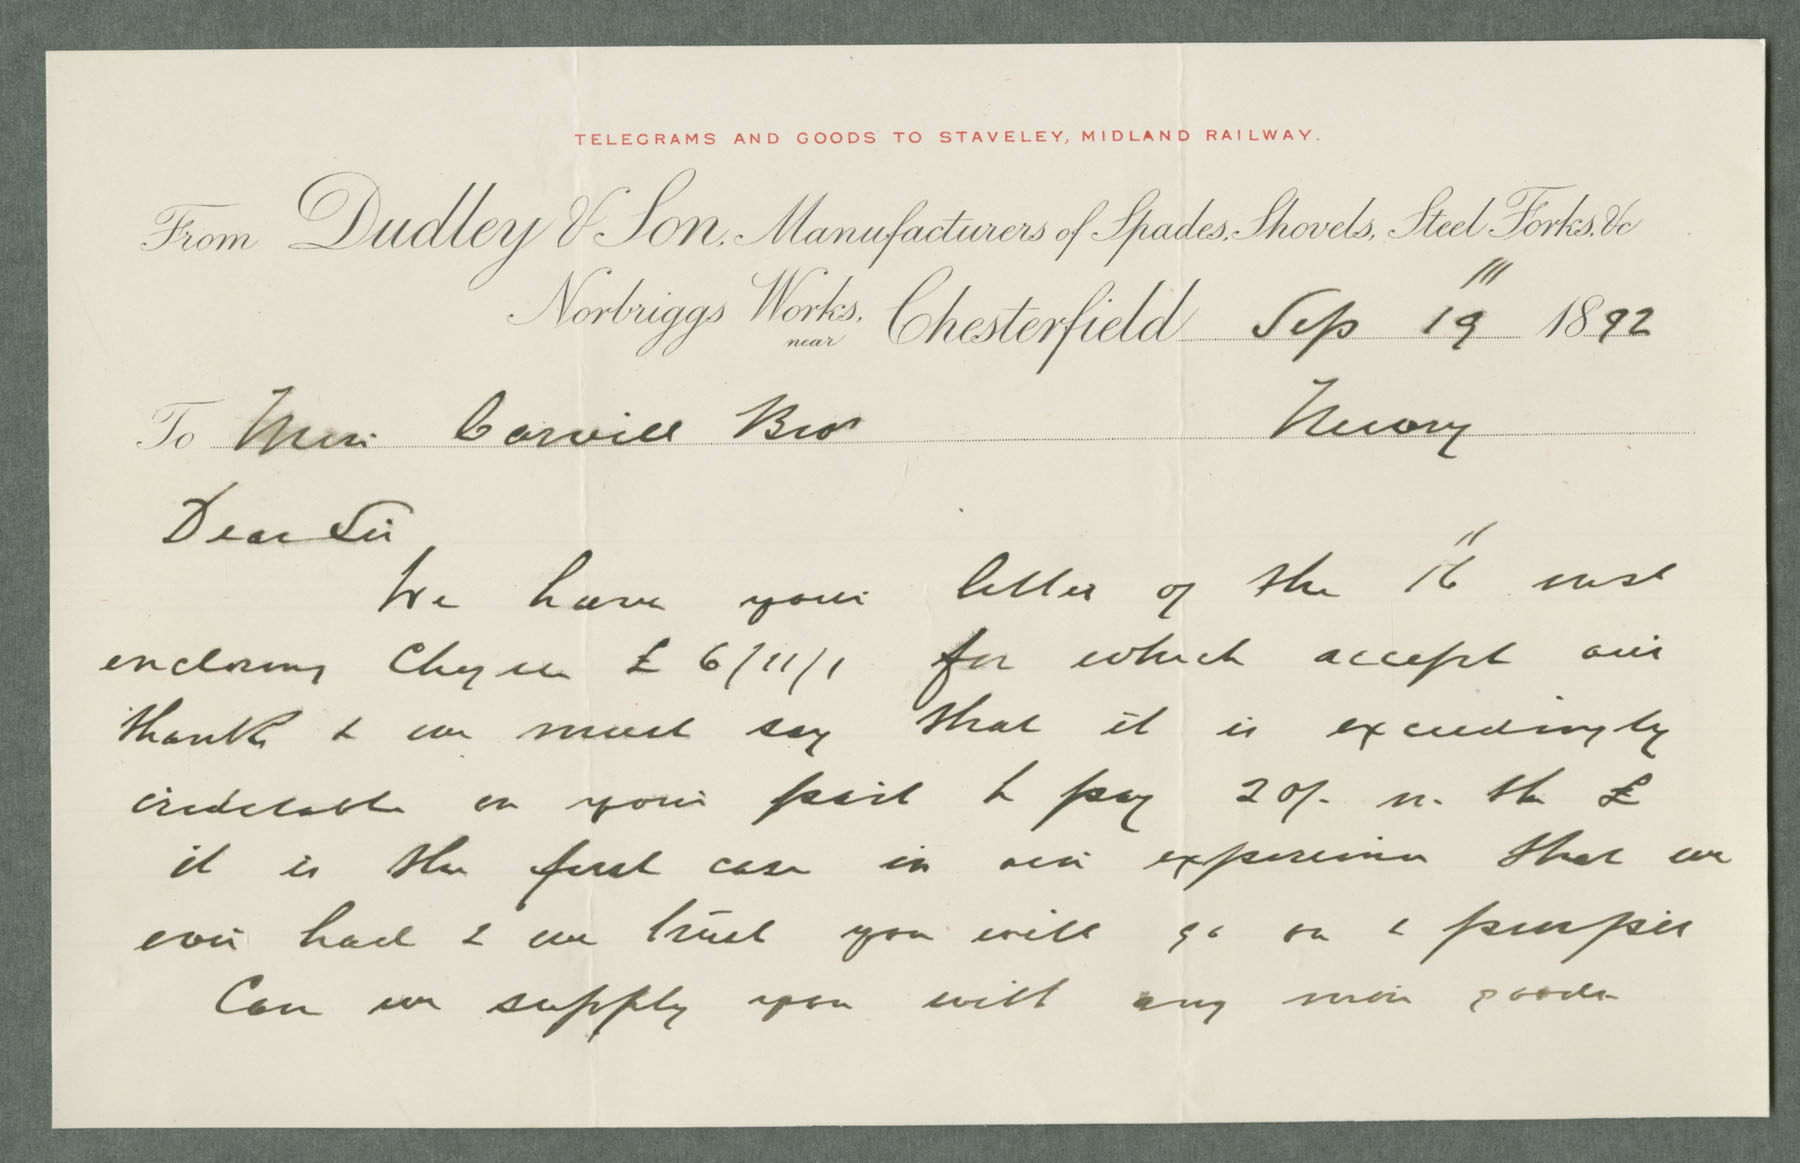 TELEGRAMS AND GOODS TO STAVELEY, MIDLAND RAILWAY.
From Dudley & Son, Manufacturers of Spades, Shovels, Steel Forks, &c
Norbriggs Works, near Chesterfield Sep 19" 1892
To Mess Carvill Bros Newry
Dear Sir
We have your letter of the 16" inst
enclosing Cheque £6/11/1 for which accept our
thanks & we must say that it is exceedingly
creditable on your part to pay 20/- in the £
it is the first case in our experience that we
ever had & we trust you will go on & prosper
Can we supply you with any more goods